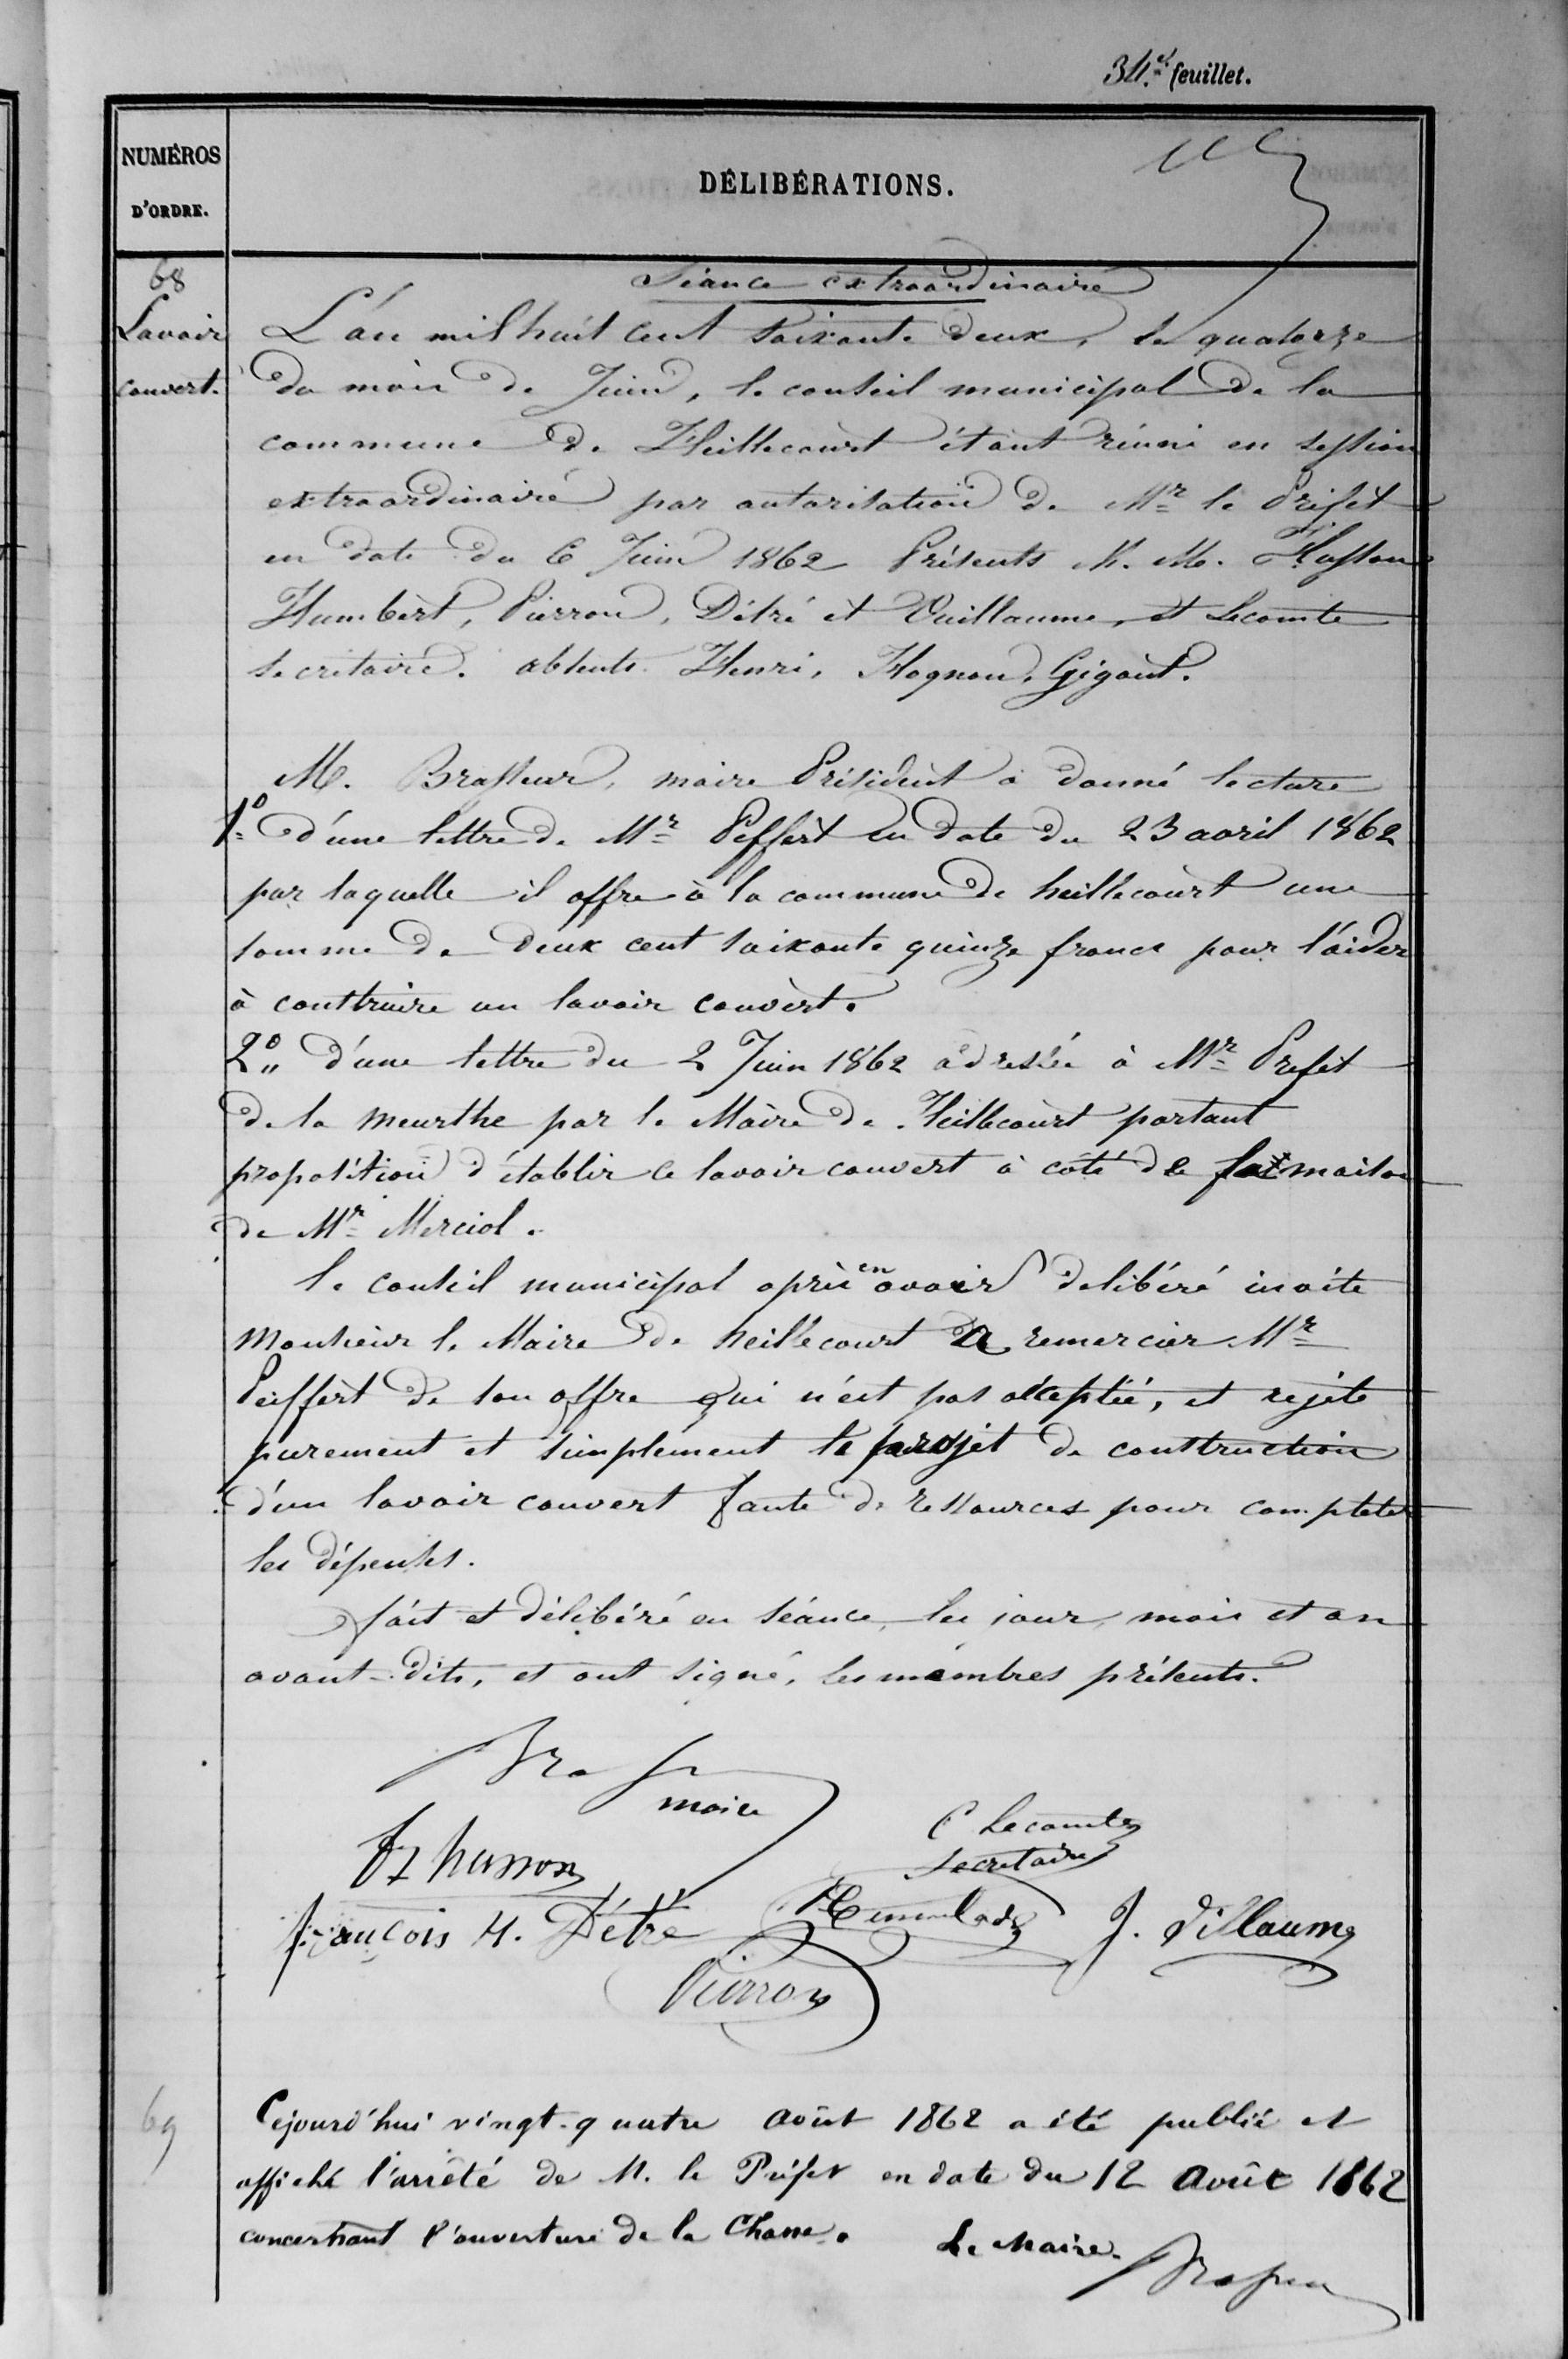 34.e feuillet.
NUMÉROS
D'ORDRE.
DÉLIBÉRATIONS.
68
Lavoir
couvert.
Séance extraordinaire
L'an mil huit cent soixante deux, le quatorze
du mois de Juin, le conseil municipal de la
commune de Heillecourt étant réuni en session
extraordinaire par autorisation de Mr le Préfet
en date du 6 Juin 1862 Présents M. M. Husson
Humbert, Pierron, Détré et Vuillaume, et Lecomte
secrétaire. absents Henri, Hognon, Gigout.
M. Brasseur, maire Président a donné lecture
1.o d'une lettre de Mr Peffert en date du 23 avril 1862
par laquelle il offre à la commune de heillecourt une
somme de deux cent soixante quinze francs pour l'aider
à construire un lavoir couvert.
2o d'une lettre du 2 Juin 1862 adressée à Mr Prefet
de la meurthe par le Maire de Heillecourt portant
proposition d'établir ce lavoir couvert à côté de la maison
de Mr Merciol.
le conseil municipal après en avoir delibéré invite
Monsieur le Maire de heillecourt à remercier Mr
Peiffert de son offre qui n'est pas acceptée, et rejète
purement et simplement le projet de construction
d'un lavoir couvert faute de ressources pour completer
les dépenses.
fait et délibéré en séance, les jour, mois et an
avant-dits, et ont signé, les membres présents.
maire
C Lecomte
secretaire
fz husson
françois H. Détré
J. Villaume
Pierron
69
Cejourd'hui vingt-quatre août 1862 a été publié et
affiché l'arrêté de M. le Préfet en date du 12 Août 1862
concernant l'ouverture de la Chasse.
Le Maire.